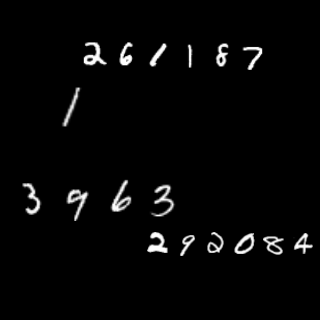 261187
1
3963
292084